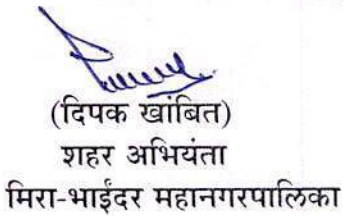 (दिपक खांबित)
शहर अभियंता
मिरा-भाईंदर महानगरपालिका